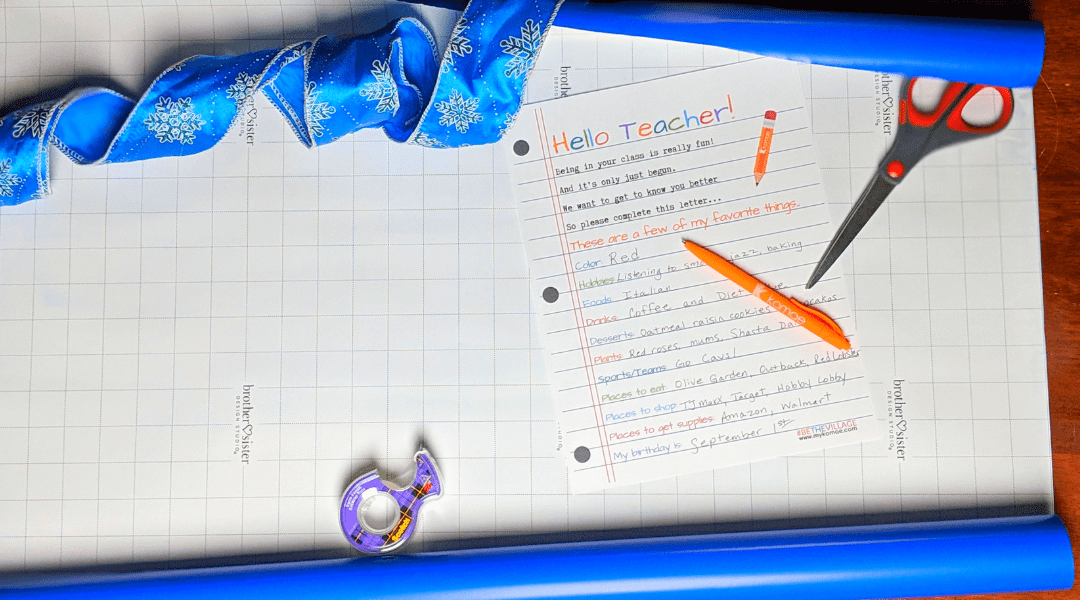 Hello Teacher!
Being in your class is really fun!
And it's only just begun.
We want to get to know you better
So please complete this letter...
These are a few of my favorite things.
Color: Red
Hobbies: Listening to jazz, baking
Foods: Italian
Drinks: Coffee and Diet
Desserts: Oatmeal raisin cookies
Plants: Red roses, mums, Shasta
Sports/Teams: Go Cavs!
Places to eat: Olive Garden, Outback, Red Lobster
Places to shop: TJ Maxx, Target, Hobby Lobby
Places to get supplies: Amazon, Walmart
My birthday is September 1st
#BETHEVILLAGE
www.mykomae.com
komae
komae
brother♡sister
DESIGN STUDIO®
brother♡sister
DESIGN STUDIO®
brother♡sister
DESIGN STUDIO®
brother♡sister
DESIGN STUDIO®
brother♡sister
DESIGN STUDIO®
Scotch